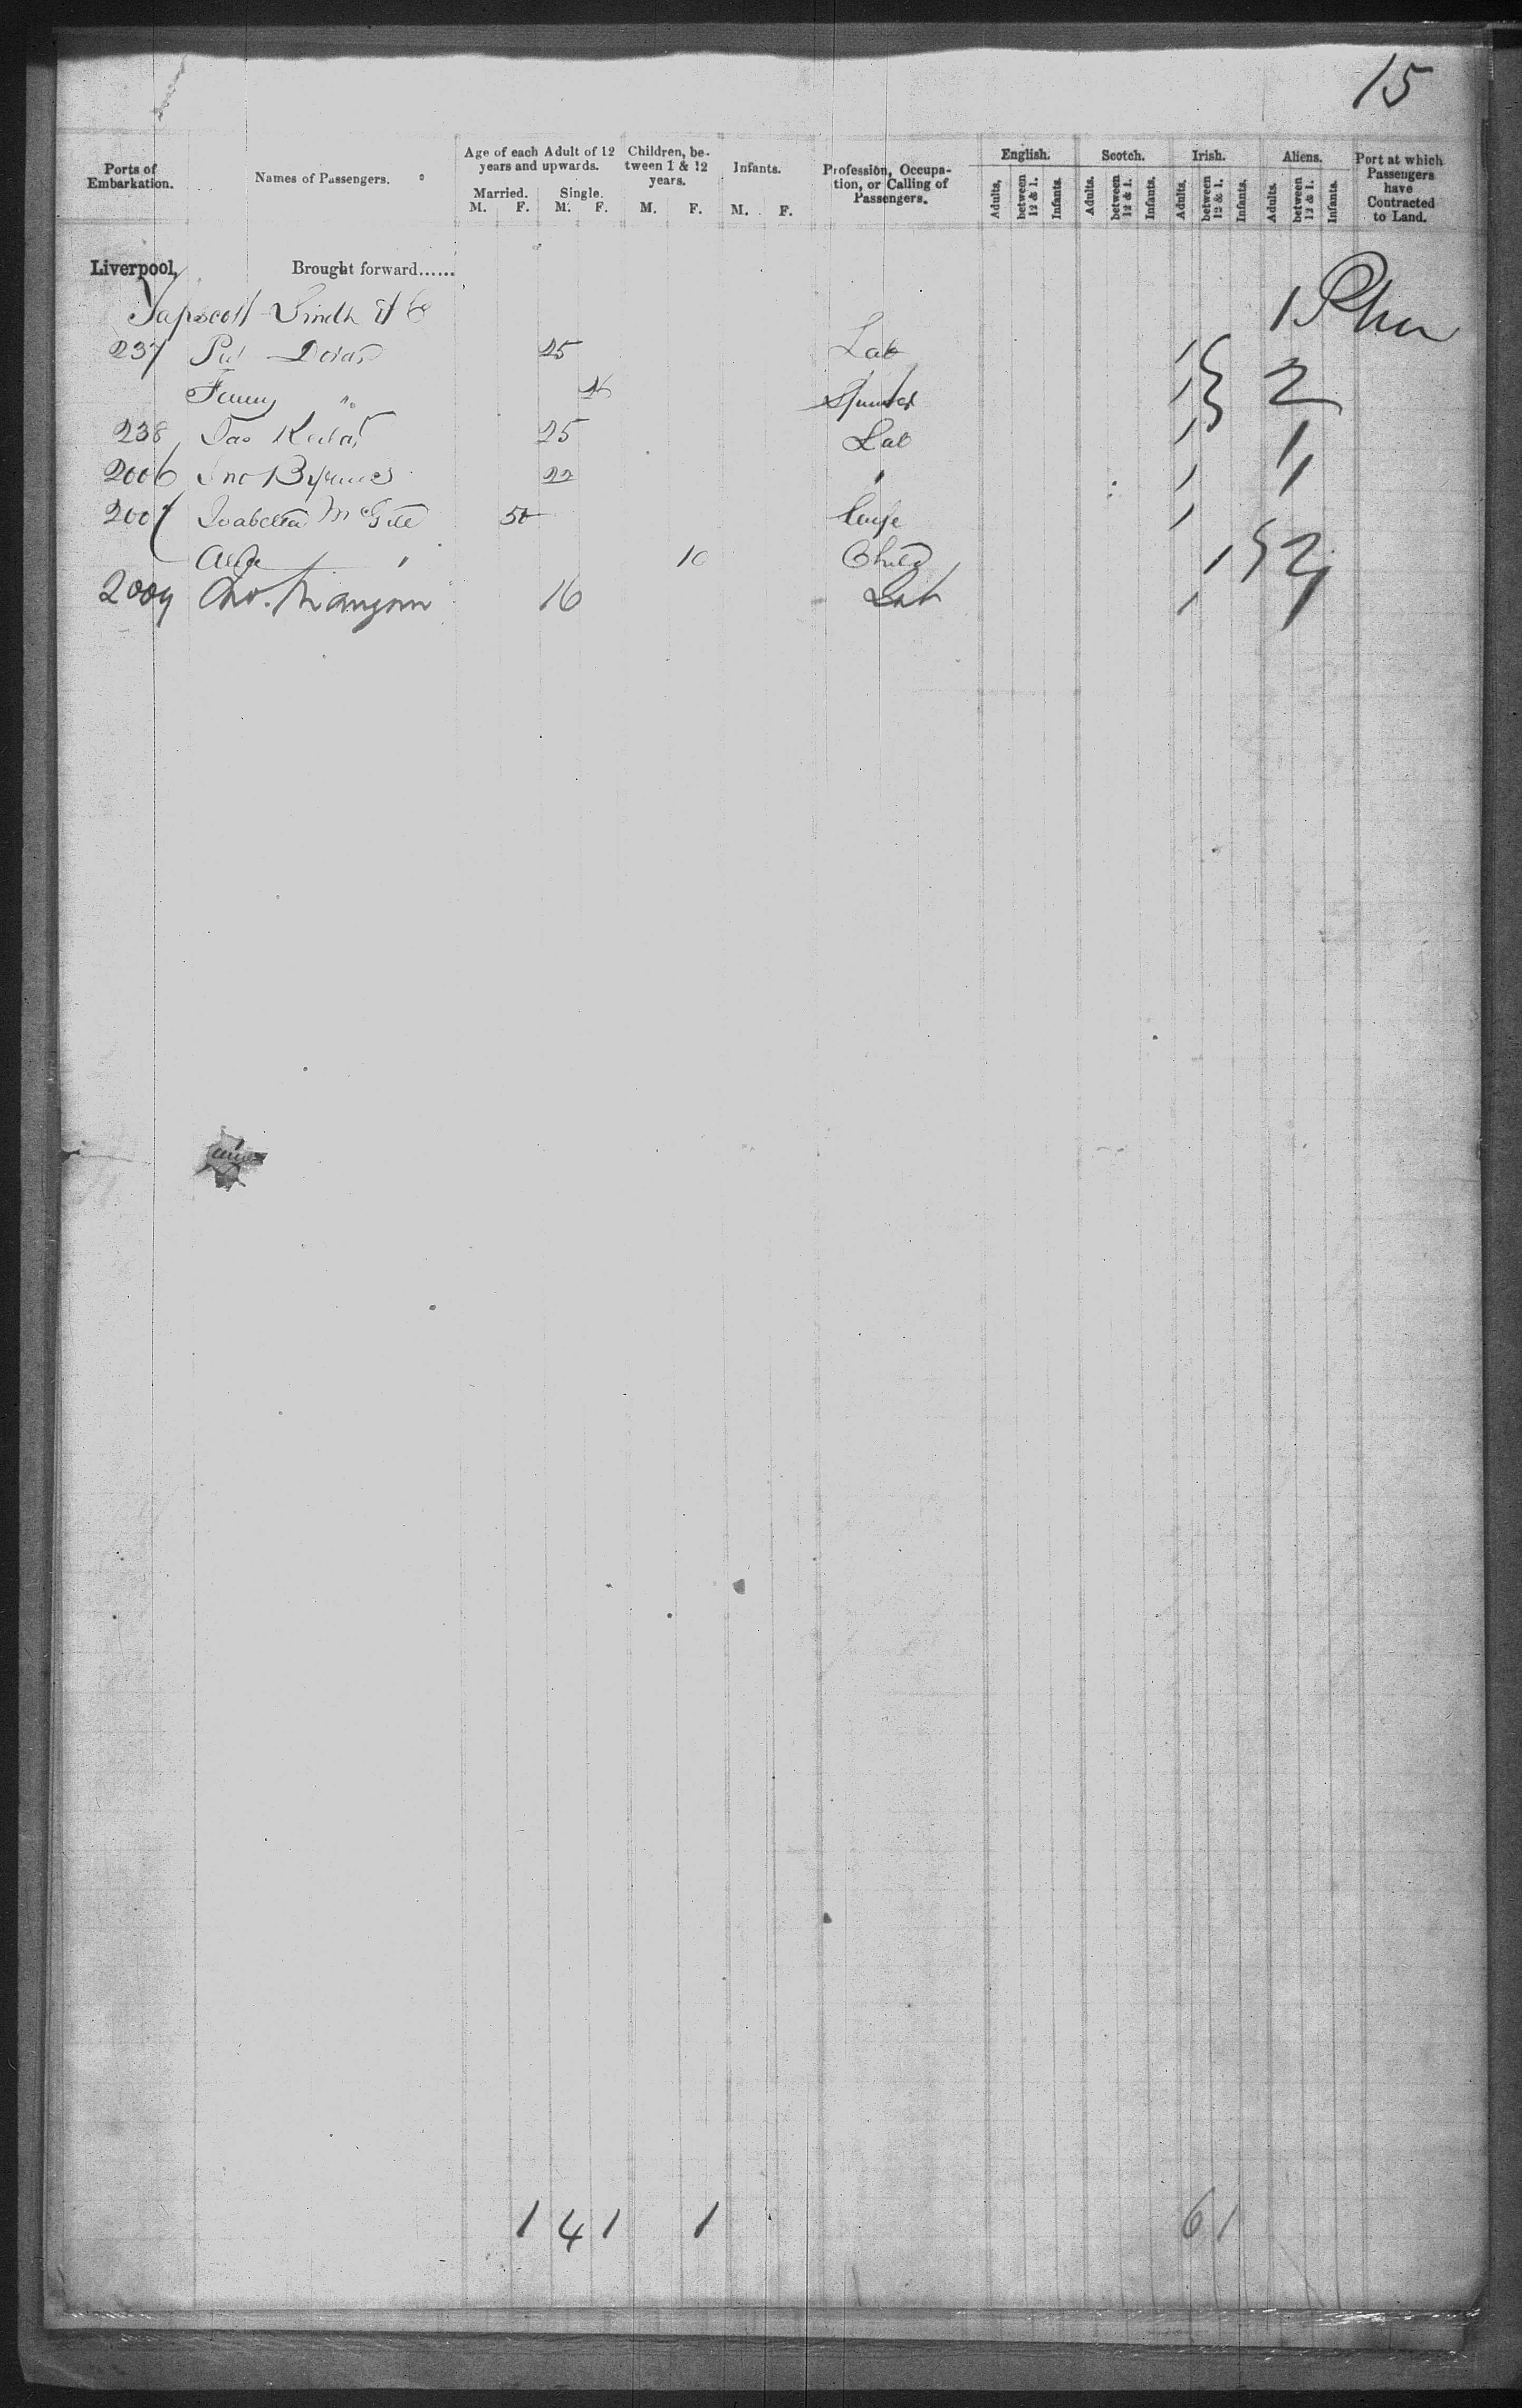 15
Ports of Embarkation.
Names of Passengers.
Age of each Adult of 12 years and upwards.
Married. Single.
M. F. M. F.
Children, between 1 & 12 years.
M. F.
Infants.
M. F.
Profession, Occupation, or Calling of Passengers.
English.
Adults, between 12 & 1. Infants.
Scotch.
Adults. between 12 & 1. Infants.
Irish.
Adults, between 12 & 1. Infants.
Aliens.
Adults. between 12 & 1. Infants.
Port at which Passengers have Contracted to Land.
Liverpool, Brought forward......
Tapscott Smith & Co 1
237 Pat Doran 25 Lab 1
Fanny " Spinster 1 2
238 Jas 25 Lab 1 1
2006 Jno Byrnes 22 " 1 1
2007 Isabella McGill 50 Wife 1
10 Child 1 2
2009 16 Lab 1 1
1 4 1 1 6 1